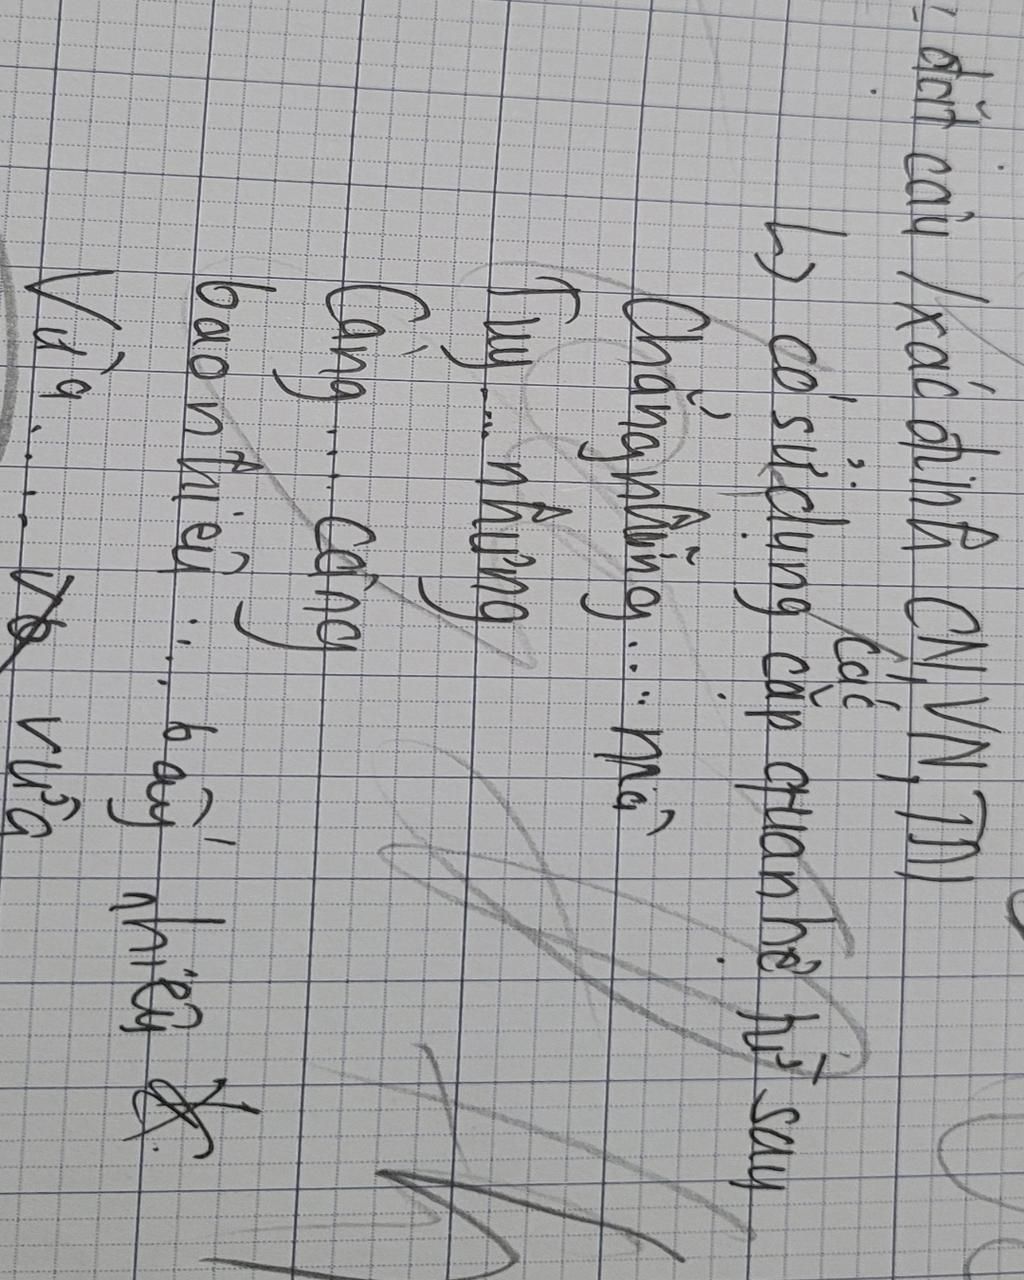 đặt câu / xác định CN, VN, TN
↳ có sử dụng các cặp quan hệ từ sau
Chẳng những ... mà
Tuy ... nhưng
Càng ... càng
bao nhiêu ... bấy nhiêu
Vừa ..... vừa